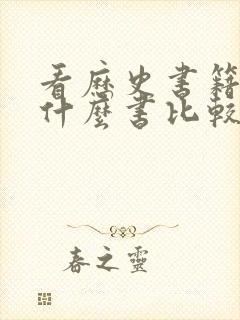 看歷史書籍
什麼書比較
春之靈